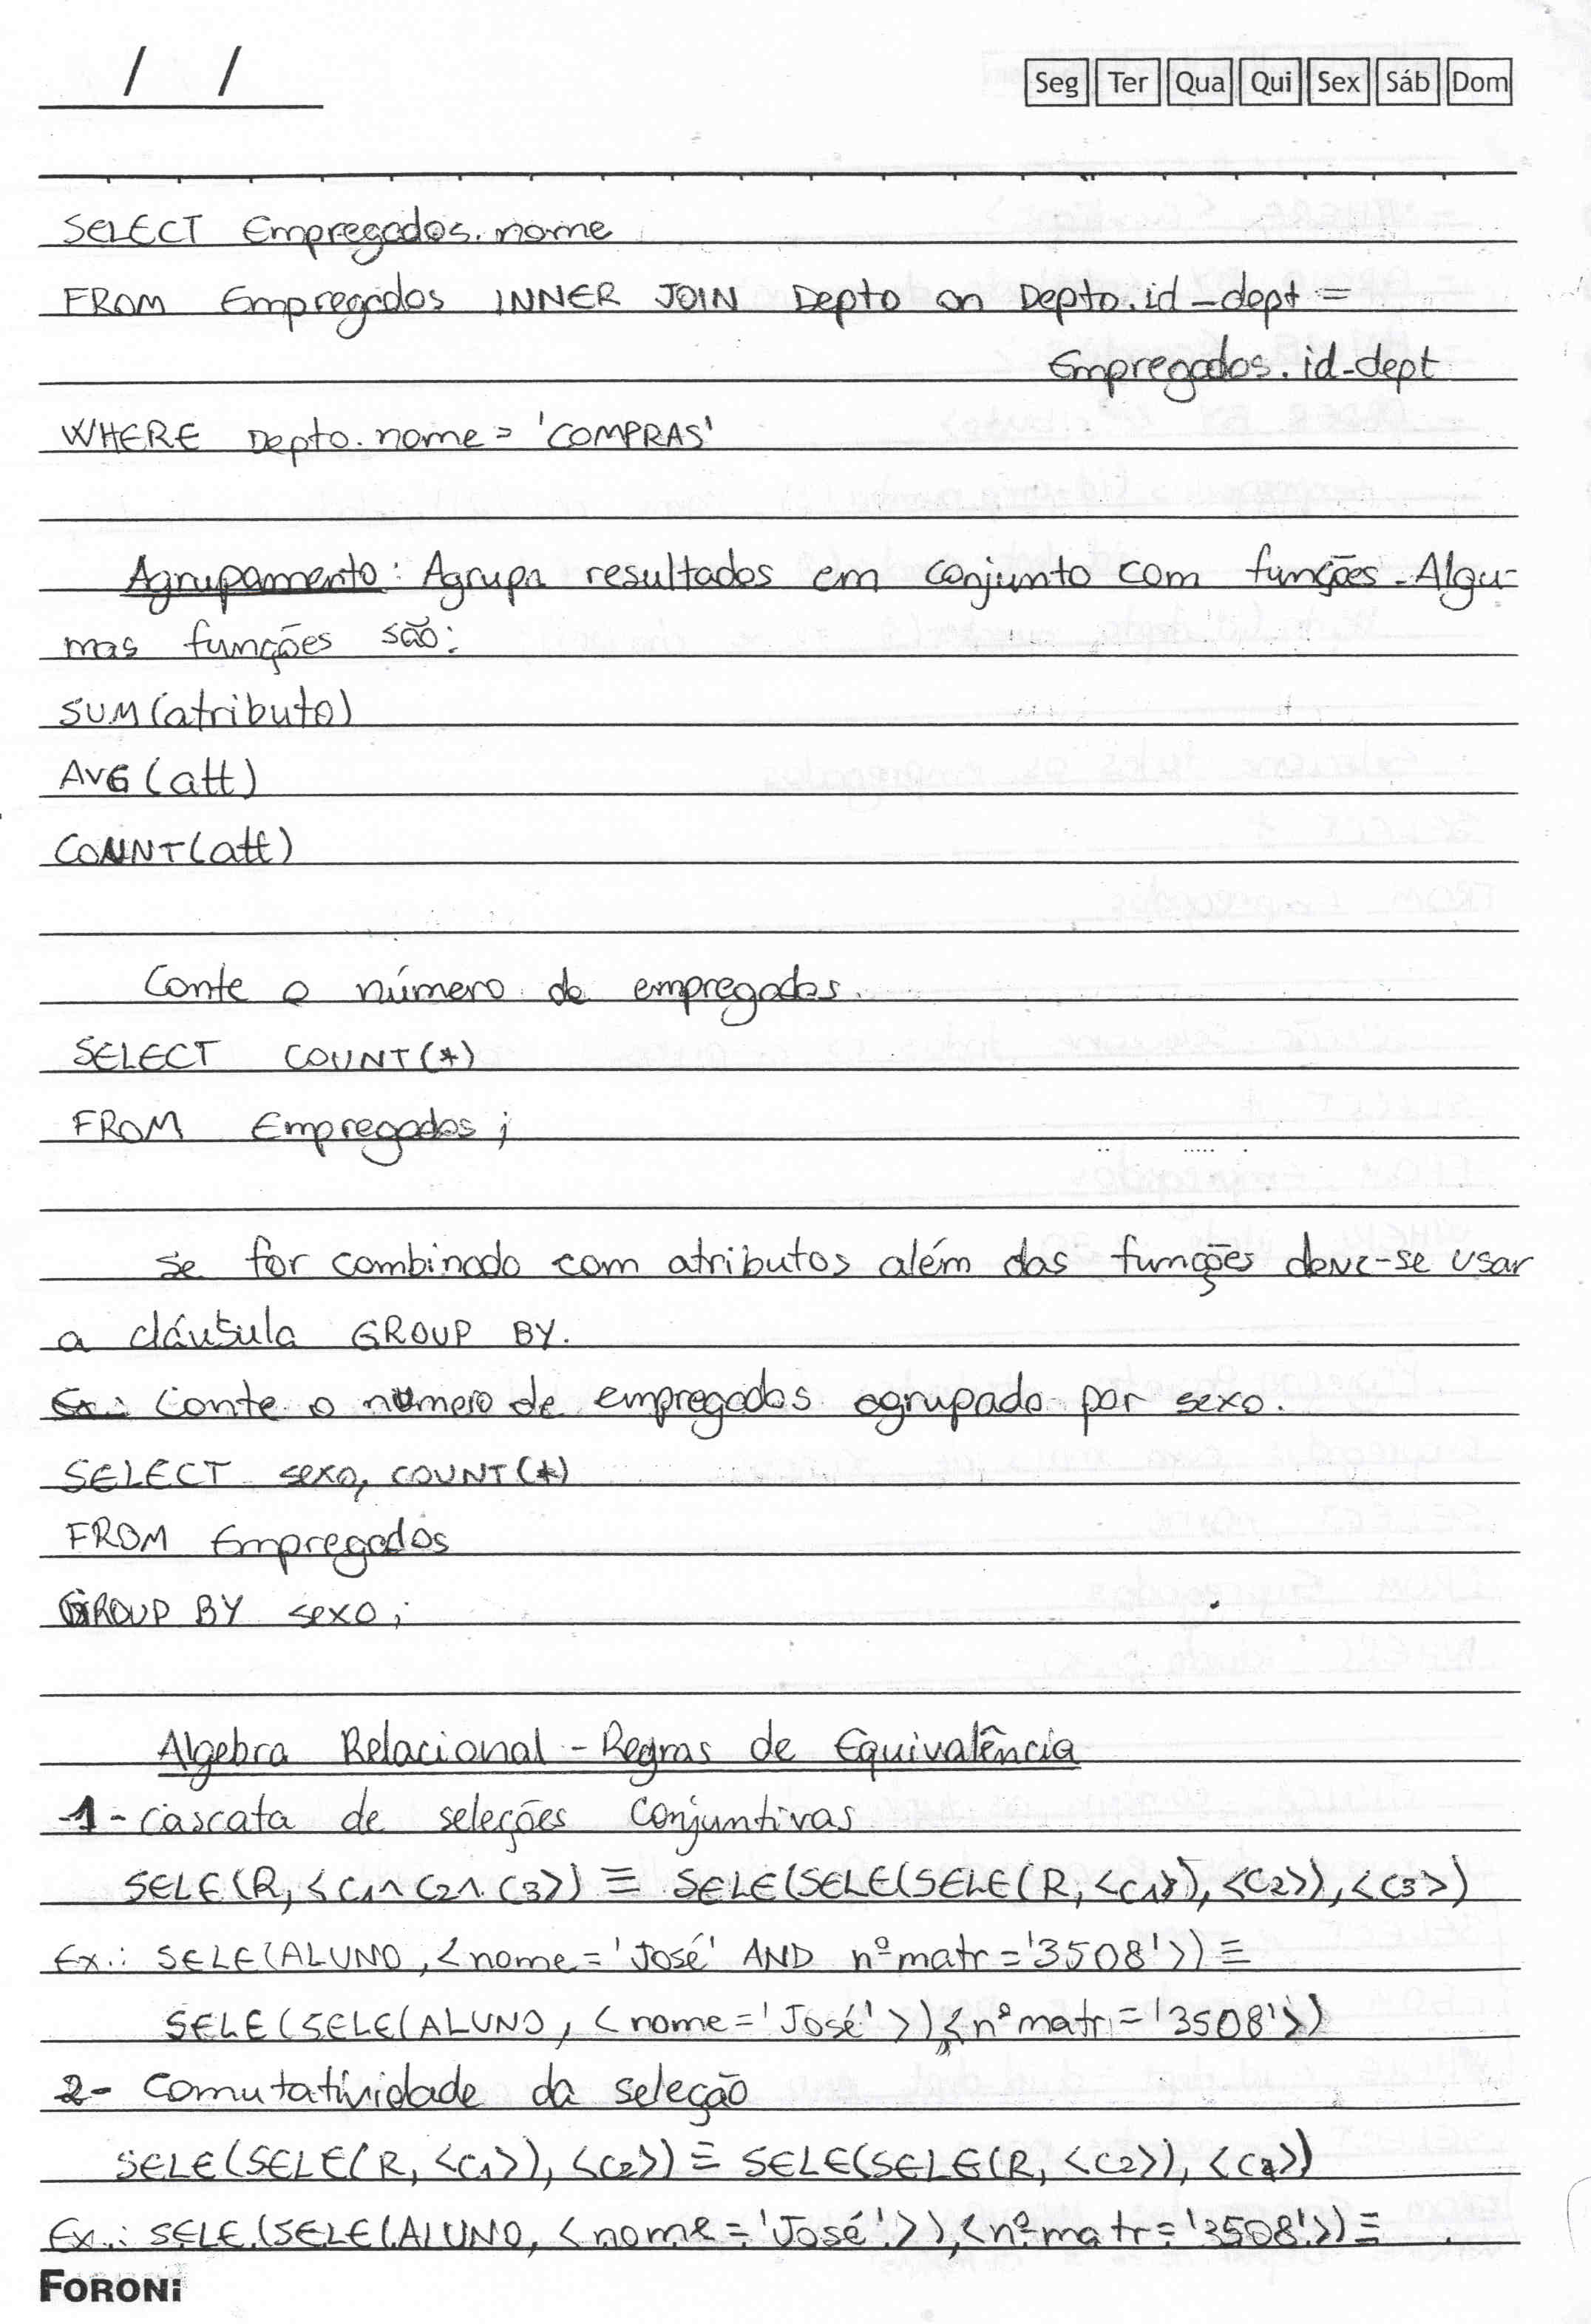 / /
Seg Ter Qua Qui Sex Sáb Dom
SELECT Empregados.nome
FROM Empregados INNER JOIN Depto on Depto.id_dept =
Empregados.id_dept
WHERE Depto.nome = 'COMPRAS'
Agrupamento: Agrupa resultados em conjunto com funções. Algu-
mas funções são:
SUM(atributo)
AVG(att)
COUNT(att)
Conte o número de empregados.
SELECT COUNT(*)
FROM Empregados;
Se for combinado com atributos além das funções deve-se usar
a cláusula GROUP BY.
Ex.: Conte o numero de empregados agrupado por sexo.
SELECT sexo, COUNT(*)
FROM Empregados
GROUP BY sexo;
Algebra Relacional - Regras de Equivalência
1- Cascata de seleções conjuntivas
SELE(R, <C1 ∧ C2 ∧ C3>) ≡ SELE(SELE(SELE(R, <C1>), <C2>), <C3>)
Ex.: SELE(ALUNO, <nome = 'José' AND nº matr = '3508'>) ≡
SELE(SELE(ALUNO, <nome = 'José'>), <nº matr = '3508'>)
2- Comutatividade da seleção
SELE(SELE(R, <C1>), <C2>) ≡ SELE(SELE(R, <C2>), <C1>)
Ex.: SELE(SELE(ALUNO, <nome = 'José'>), <nº matr = '3508'>) ≡
FORONI